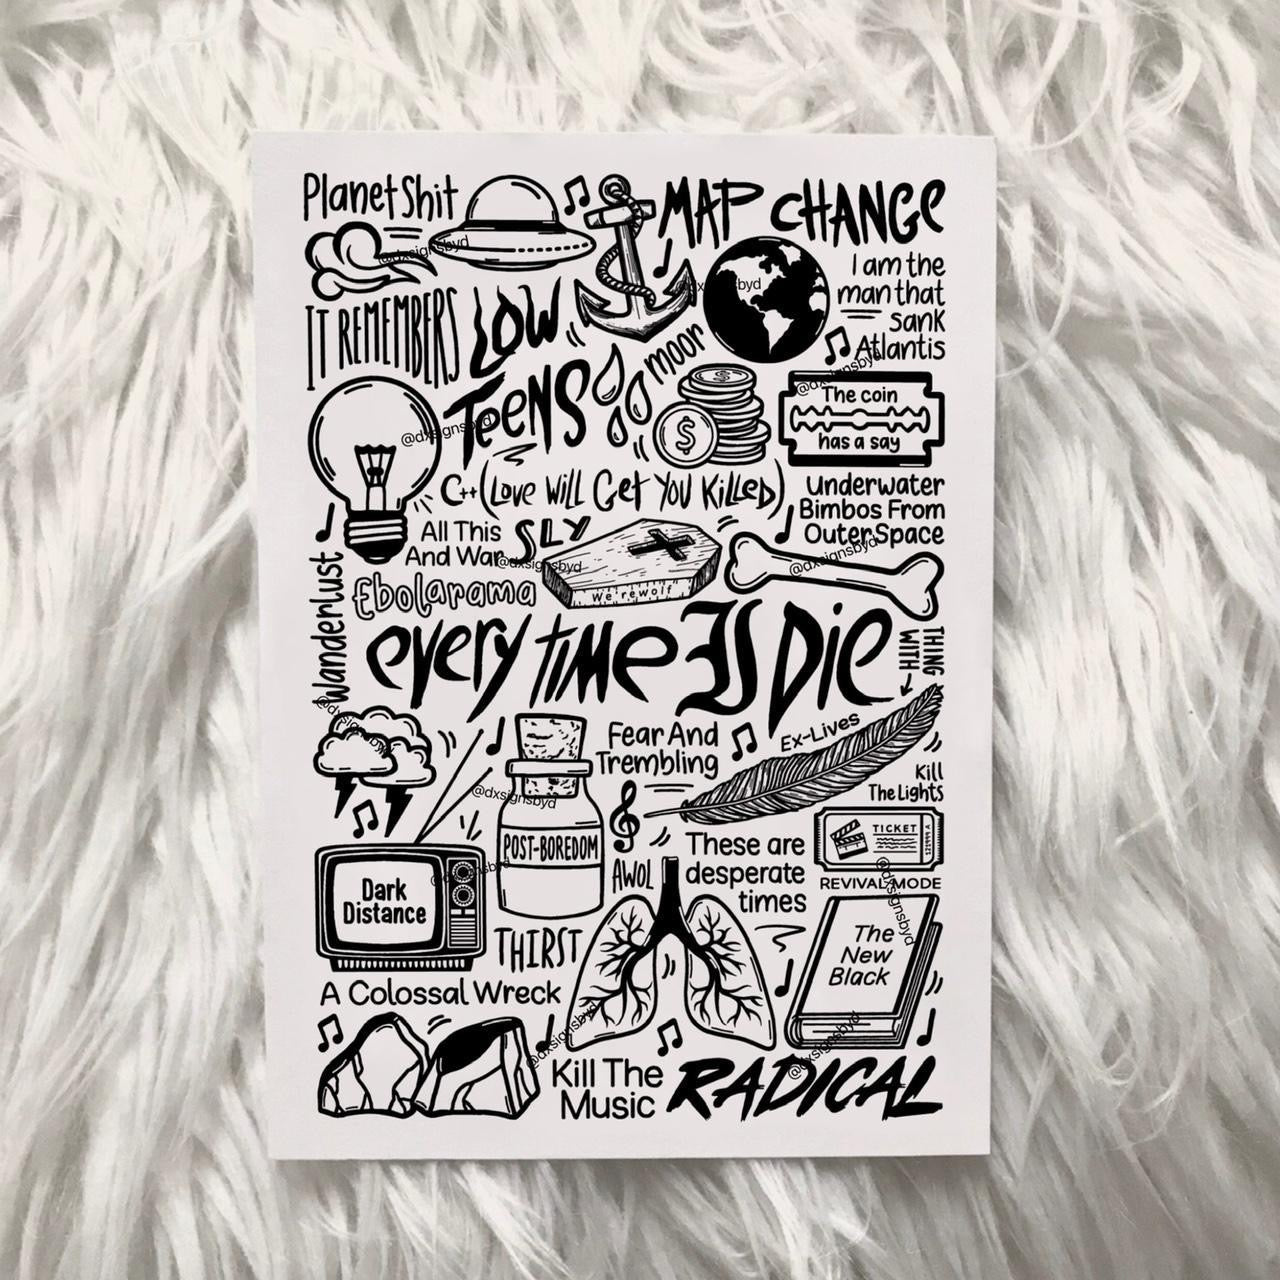 Planet Shit
MAP CHANGE
@dxsignsbyd
I am the
man that
sank
Atlantis
IT REMEMBERS
LOW
TEENS
moor
@dxsignsbyd
The coin
has a say
@dxsignsbyd
C++(Love Will Get You Killed)
Underwater
Bimbos From
Outer Space
All This
And War
SLY
@dxsignsbyd
@dxsignsbyd
Ebolarama
We'rewolf
Wanderlust
every time IS Die
THING
WITH
@dxsignsbyd
Fear And
Trembling
Ex-Lives
Kill
The Lights
@dxsignsbyd
POST-BOREDOM
AWOL
These are
desperate
times
TICKET
REVIVAL MODE
@dxsignsbyd
Dark
Distance
THIRST
The
New
Black
A Colossal Wreck
@dxsignsbyd
@dxsignsbyd
Kill The
Music
RADICAL